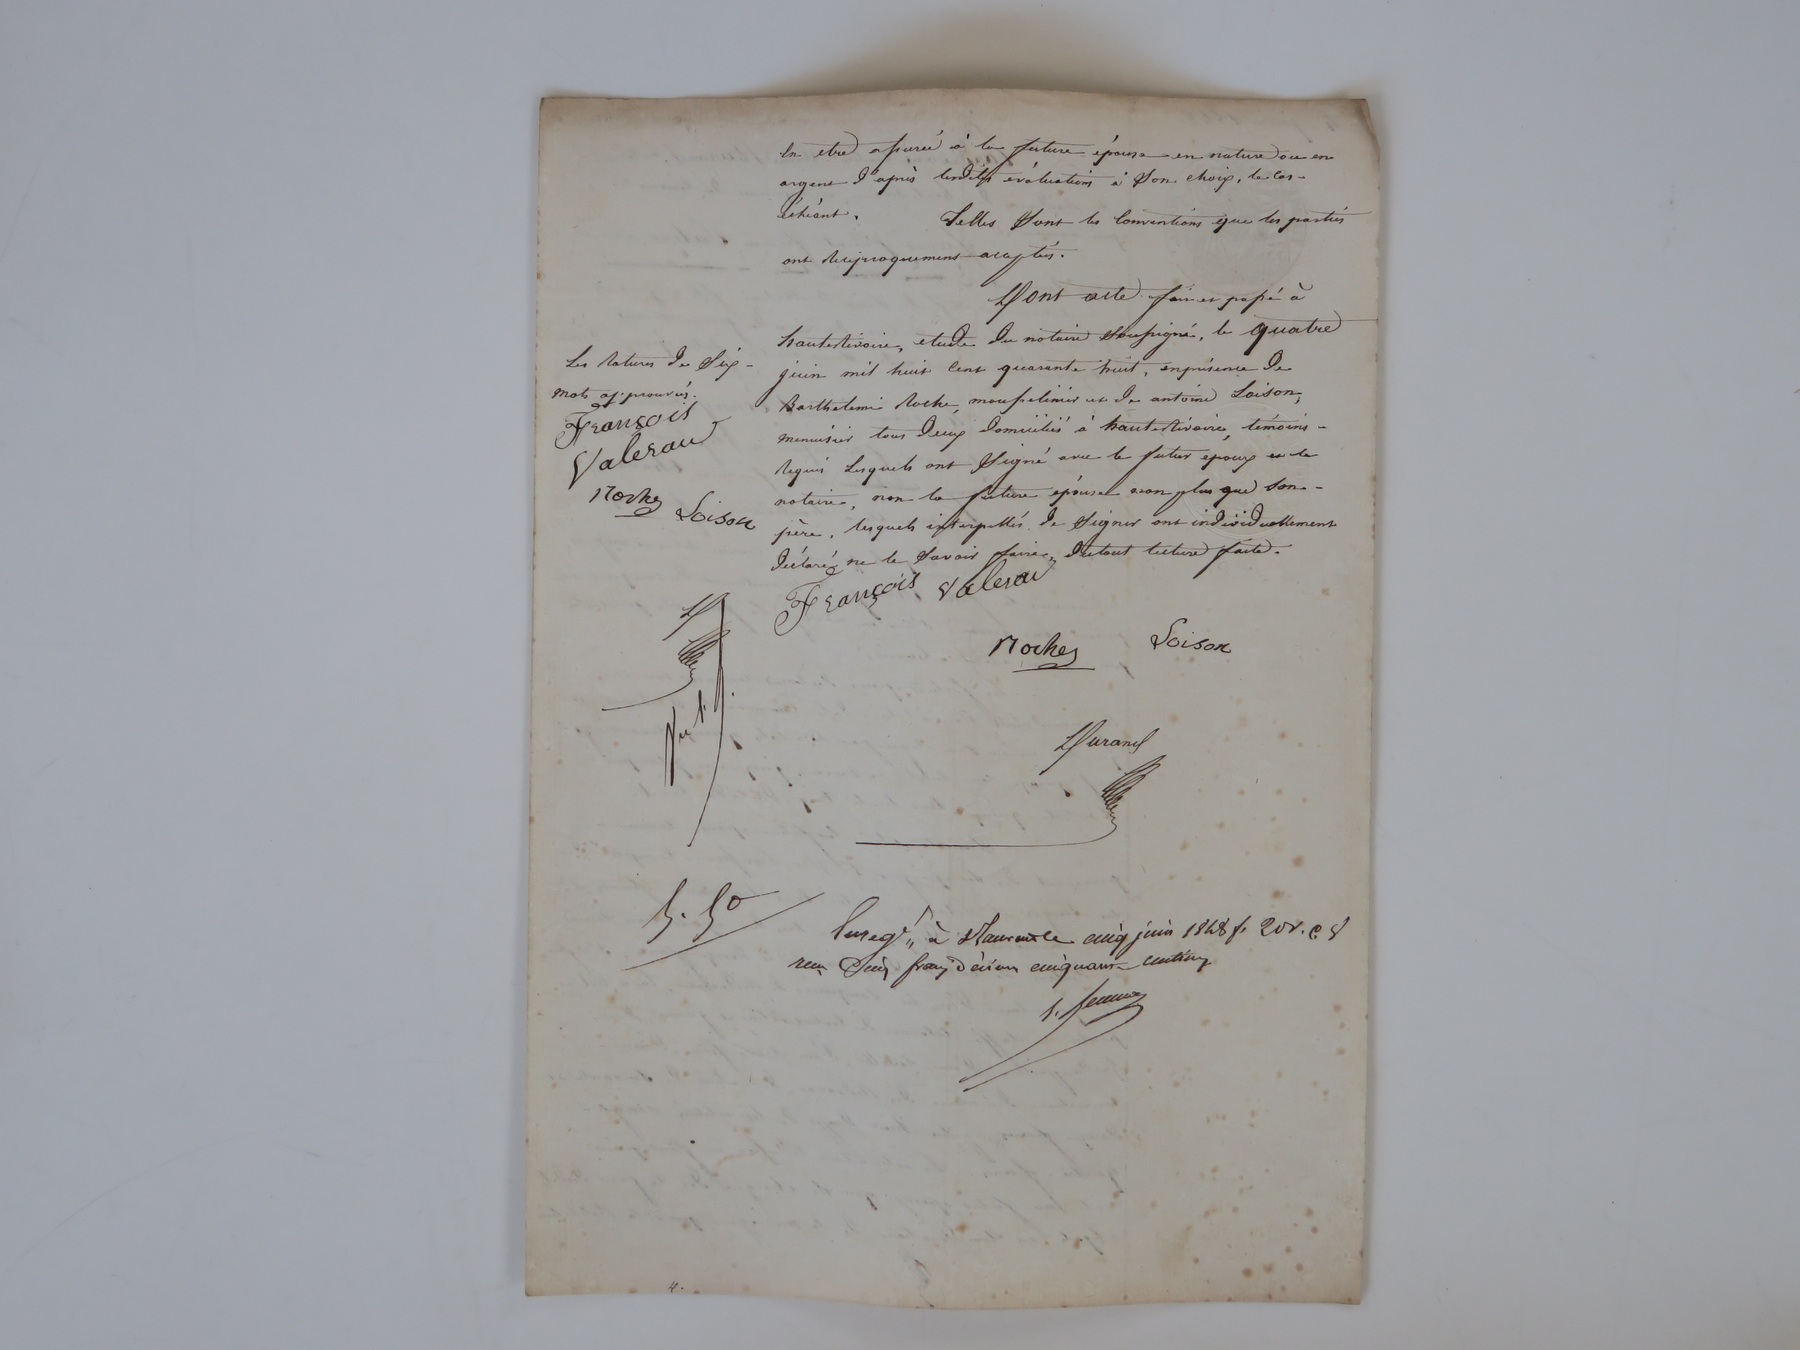 en etre assuré à la future épouse en nature ou en
argent d'après lesdites évaluations à son choix, le cas-
échéant. Telles sont les conventions que les parties
ont réciproquement acceptés.
Dont acte fait et passé à
hauterivoire, etude du notaire soussigné, le quatre
juin mil huit cent quarante huit, en présence de
Barthelemi Roche, et de antoine Loison,
menuisier tous deux domiciliés à hauterivoire, témoins-
requis lesquels ont signé avec le futur epoux et le
notaire, non la future épouse non plus que son-
père, lesquels interpellés de signer ont individuellement
déclaré ne le savoir faire, du tout lecture faite.
Les ratures de six-
mots approuvés.
François
Valerau
Roche Loison
François Valerau
Roche Loison
Durand
5. 50
Enregé à St Laurent le cinq juin 1848 f. 20 v. c 8
reçu cinq francs décime cinquante centimes
4.